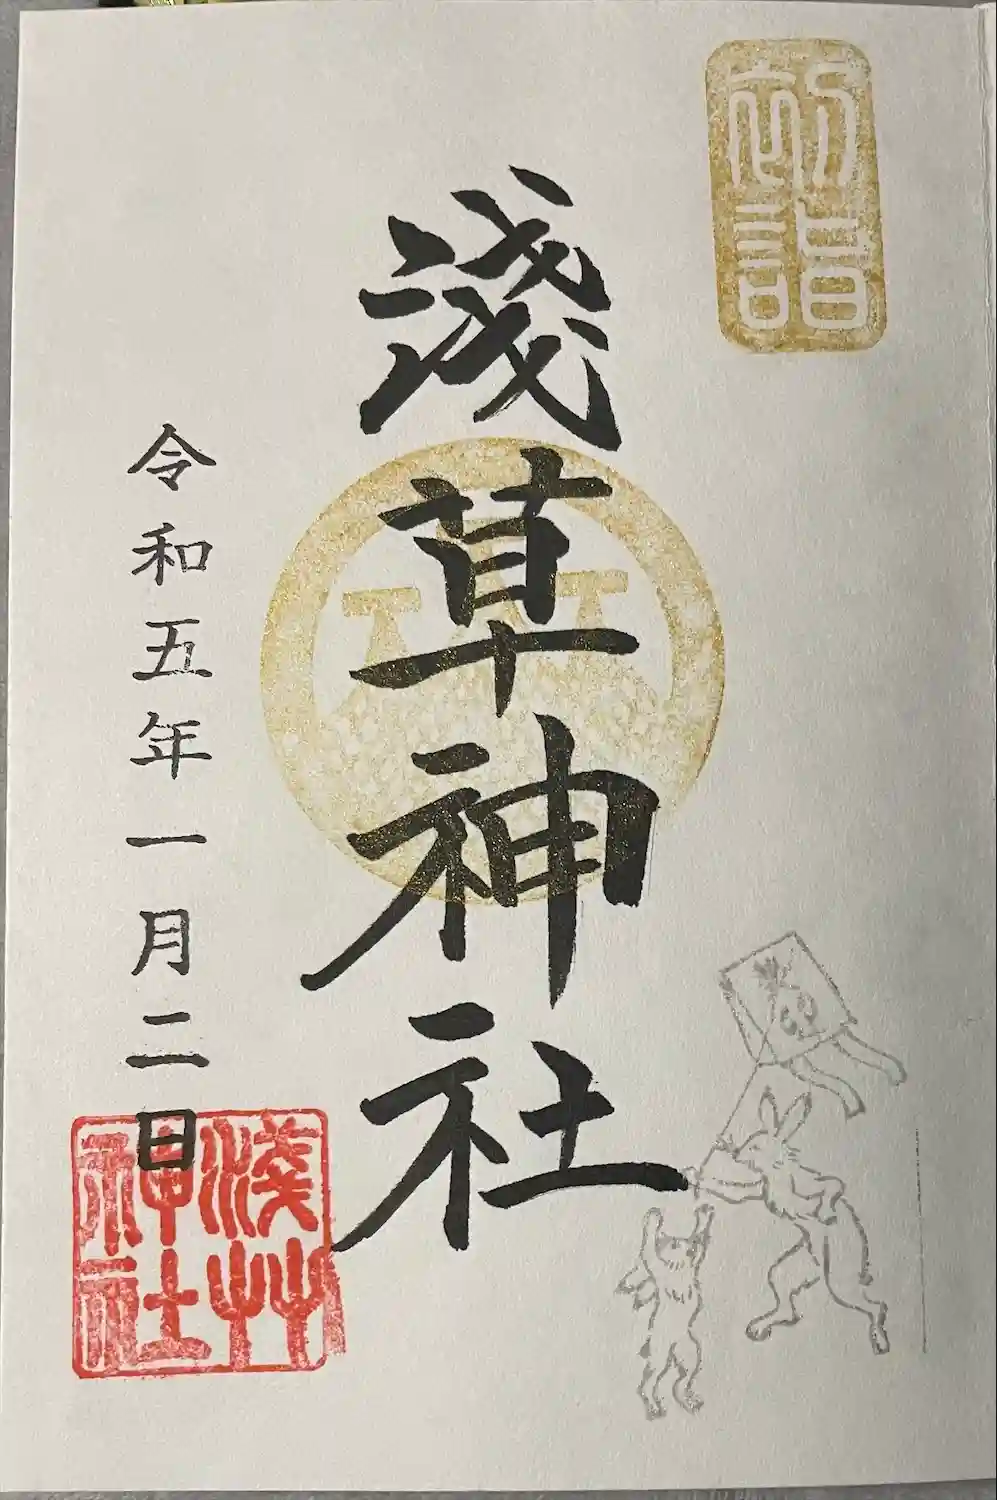 初詣
浅草神社
令和五年一月二日
淺艸
神社